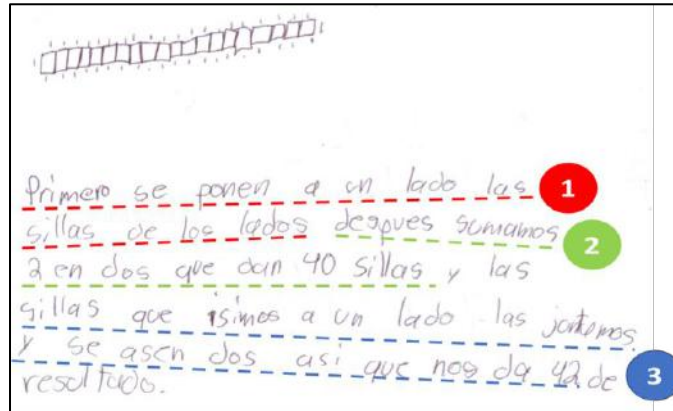 Primero se ponen a un lado las 1
sillas de los lados despues sumamos 2
2 en dos que dan 40 sillas y las
sillas que isimos a un lado las juntamos
y se asen dos asi que nos da 42 de 3
resultado.